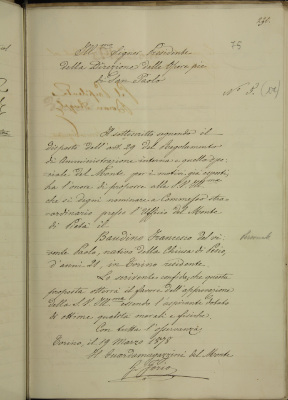 Ill.mo Signor Presidente
della Direzione delle Opere pie
di San Paolo
75
Il sottoscritto seguendo il
disposto dell'art. 29 del Regolamento
di Amministrazione interna e quello spe-
ciale del Monte per i motivi già esposti,
ha l'onore di proporre alla S.V. Ill.ma
che si degni nominare a Commesso stra-
ordinario presso l'Ufficio del Monte
di Pietà il
Bandino Francesco del vi-
vente Paolo, nativo della Chiusa di Pesio,
d'anni 21, in Torino residente.
Lo scrivente confida che questa
proposta otterrà il favore dell'approvazione
della S.V. Ill.ma essendo l'aspirante dotato
di ottime qualità morali e fisiche.
Con tutta l'osservanza
Torino, il 19 Marzo 1878
Il Guardamagazzini del Monte